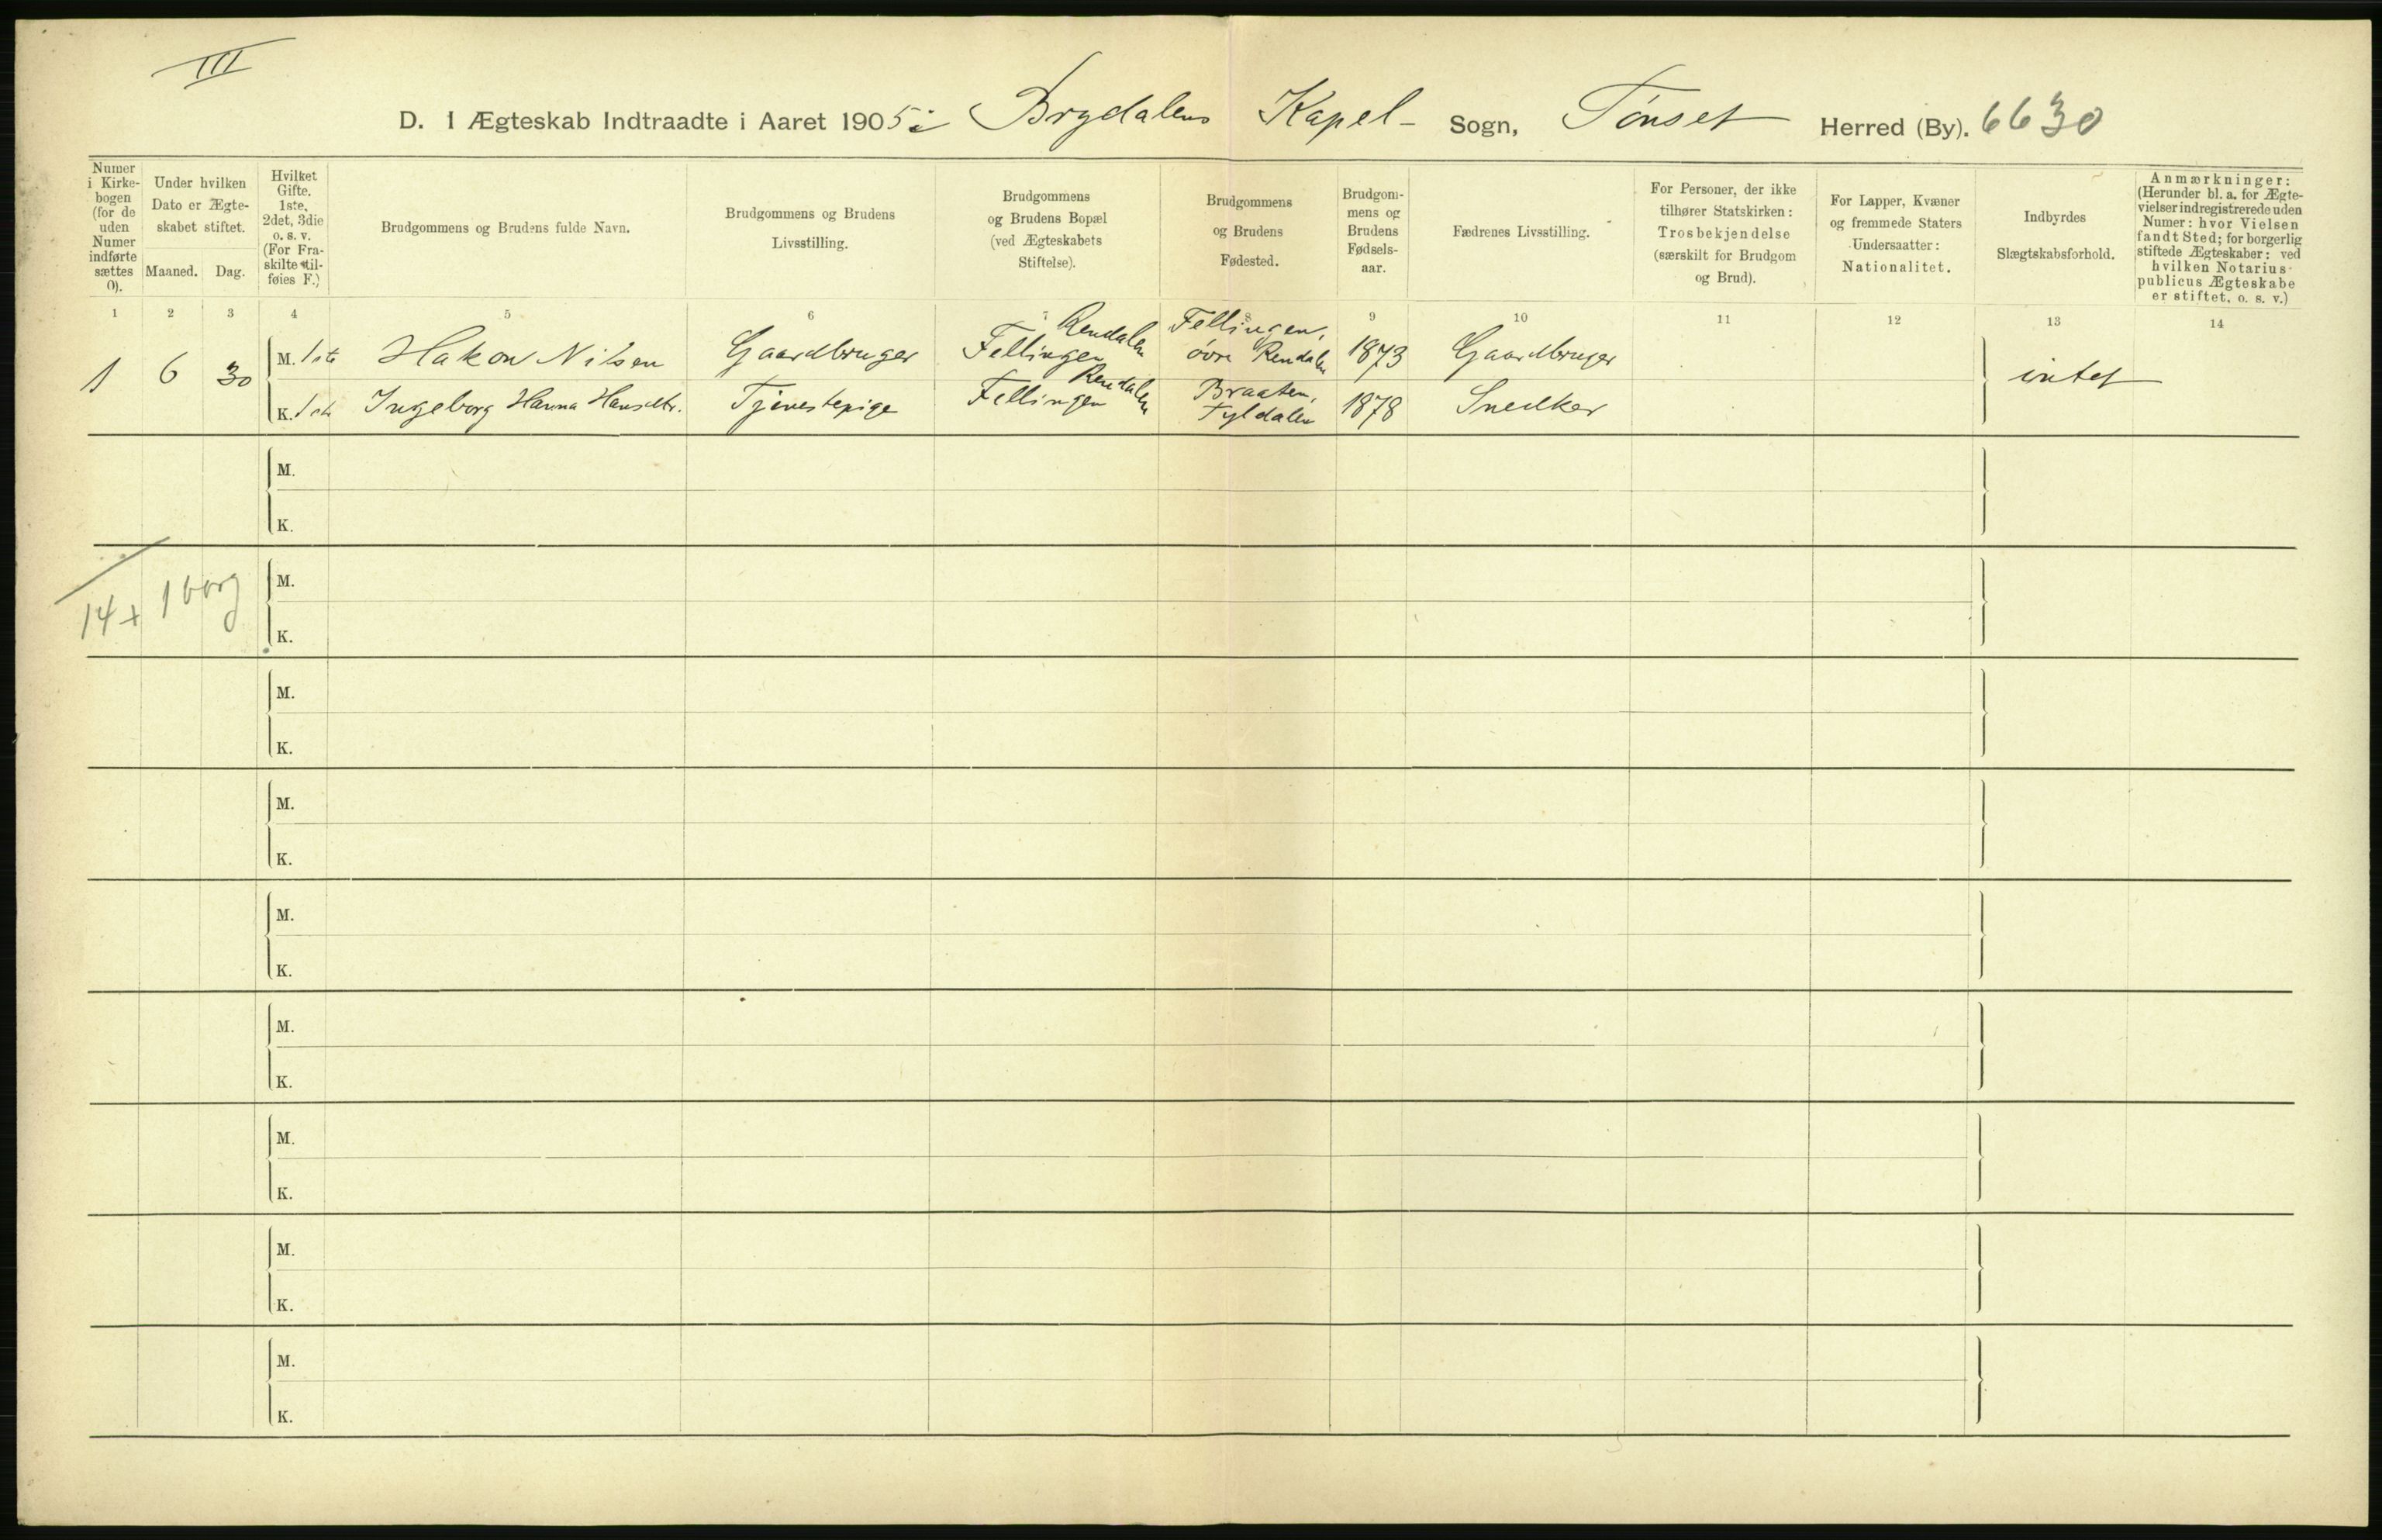 III
D. I Ægteskab Indtraadte i Aaret 1905 i Brydalens Kapel- Sogn, Tønset Herred (By). 6630
Numer i Kirke-bogen (for de uden Numer indførte sættes 0).
Under hvilken Dato er Ægte-skabet stiftet.
Maaned. Dag.
Hvilket Gifte. 1ste, 2det, 3die o. s. v. (For Fra-skilte til-føies F.)
Brudgommens og Brudens fulde Navn.
Brudgommens og Brudens Livsstilling.
Brudgommens og Brudens Bopæl (ved Ægteskabets Stiftelse).
Brudgommens og Brudens Fødested.
Brudgom-mens og Brudens Fødsels-aar.
Fædrenes Livsstilling.
For Personer, der ikke tilhører Statskirken: Trosbekjendelse (særskilt for Brudgom og Brud).
For Lapper, Kvæner og fremmede Staters Undersaatter: Nationalitet.
Indbyrdes Slægtskabsforhold.
Anmærkninger: (Herunder bl. a. for Ægte-vielser indregistrerede uden Numer: hvor Vielsen fandt Sted; for borgerlig stiftede Ægteskaber: ved hvilken Notarius publicus Ægteskabet er stiftet, o. s. v.)
1 2 3 4 5 6 7 8 9 10 11 12 13 14
1 6 30 M. 1ste Hakon Nilsen Gaardbruger Fellingen Rendalen Fellingen, øvre Rendalen 1873 Gaardbruger intet
K. 1ste Ingeborg Hanna Hansdtr. Tjenestepige Fellingen Rendalen Braaten, Tyldalen 1878 Snedker
M.
K.
14 + 1 borg
M.
K.
M.
K.
M.
K.
M.
K.
M.
K.
M.
K.
M.
K.
M.
K.